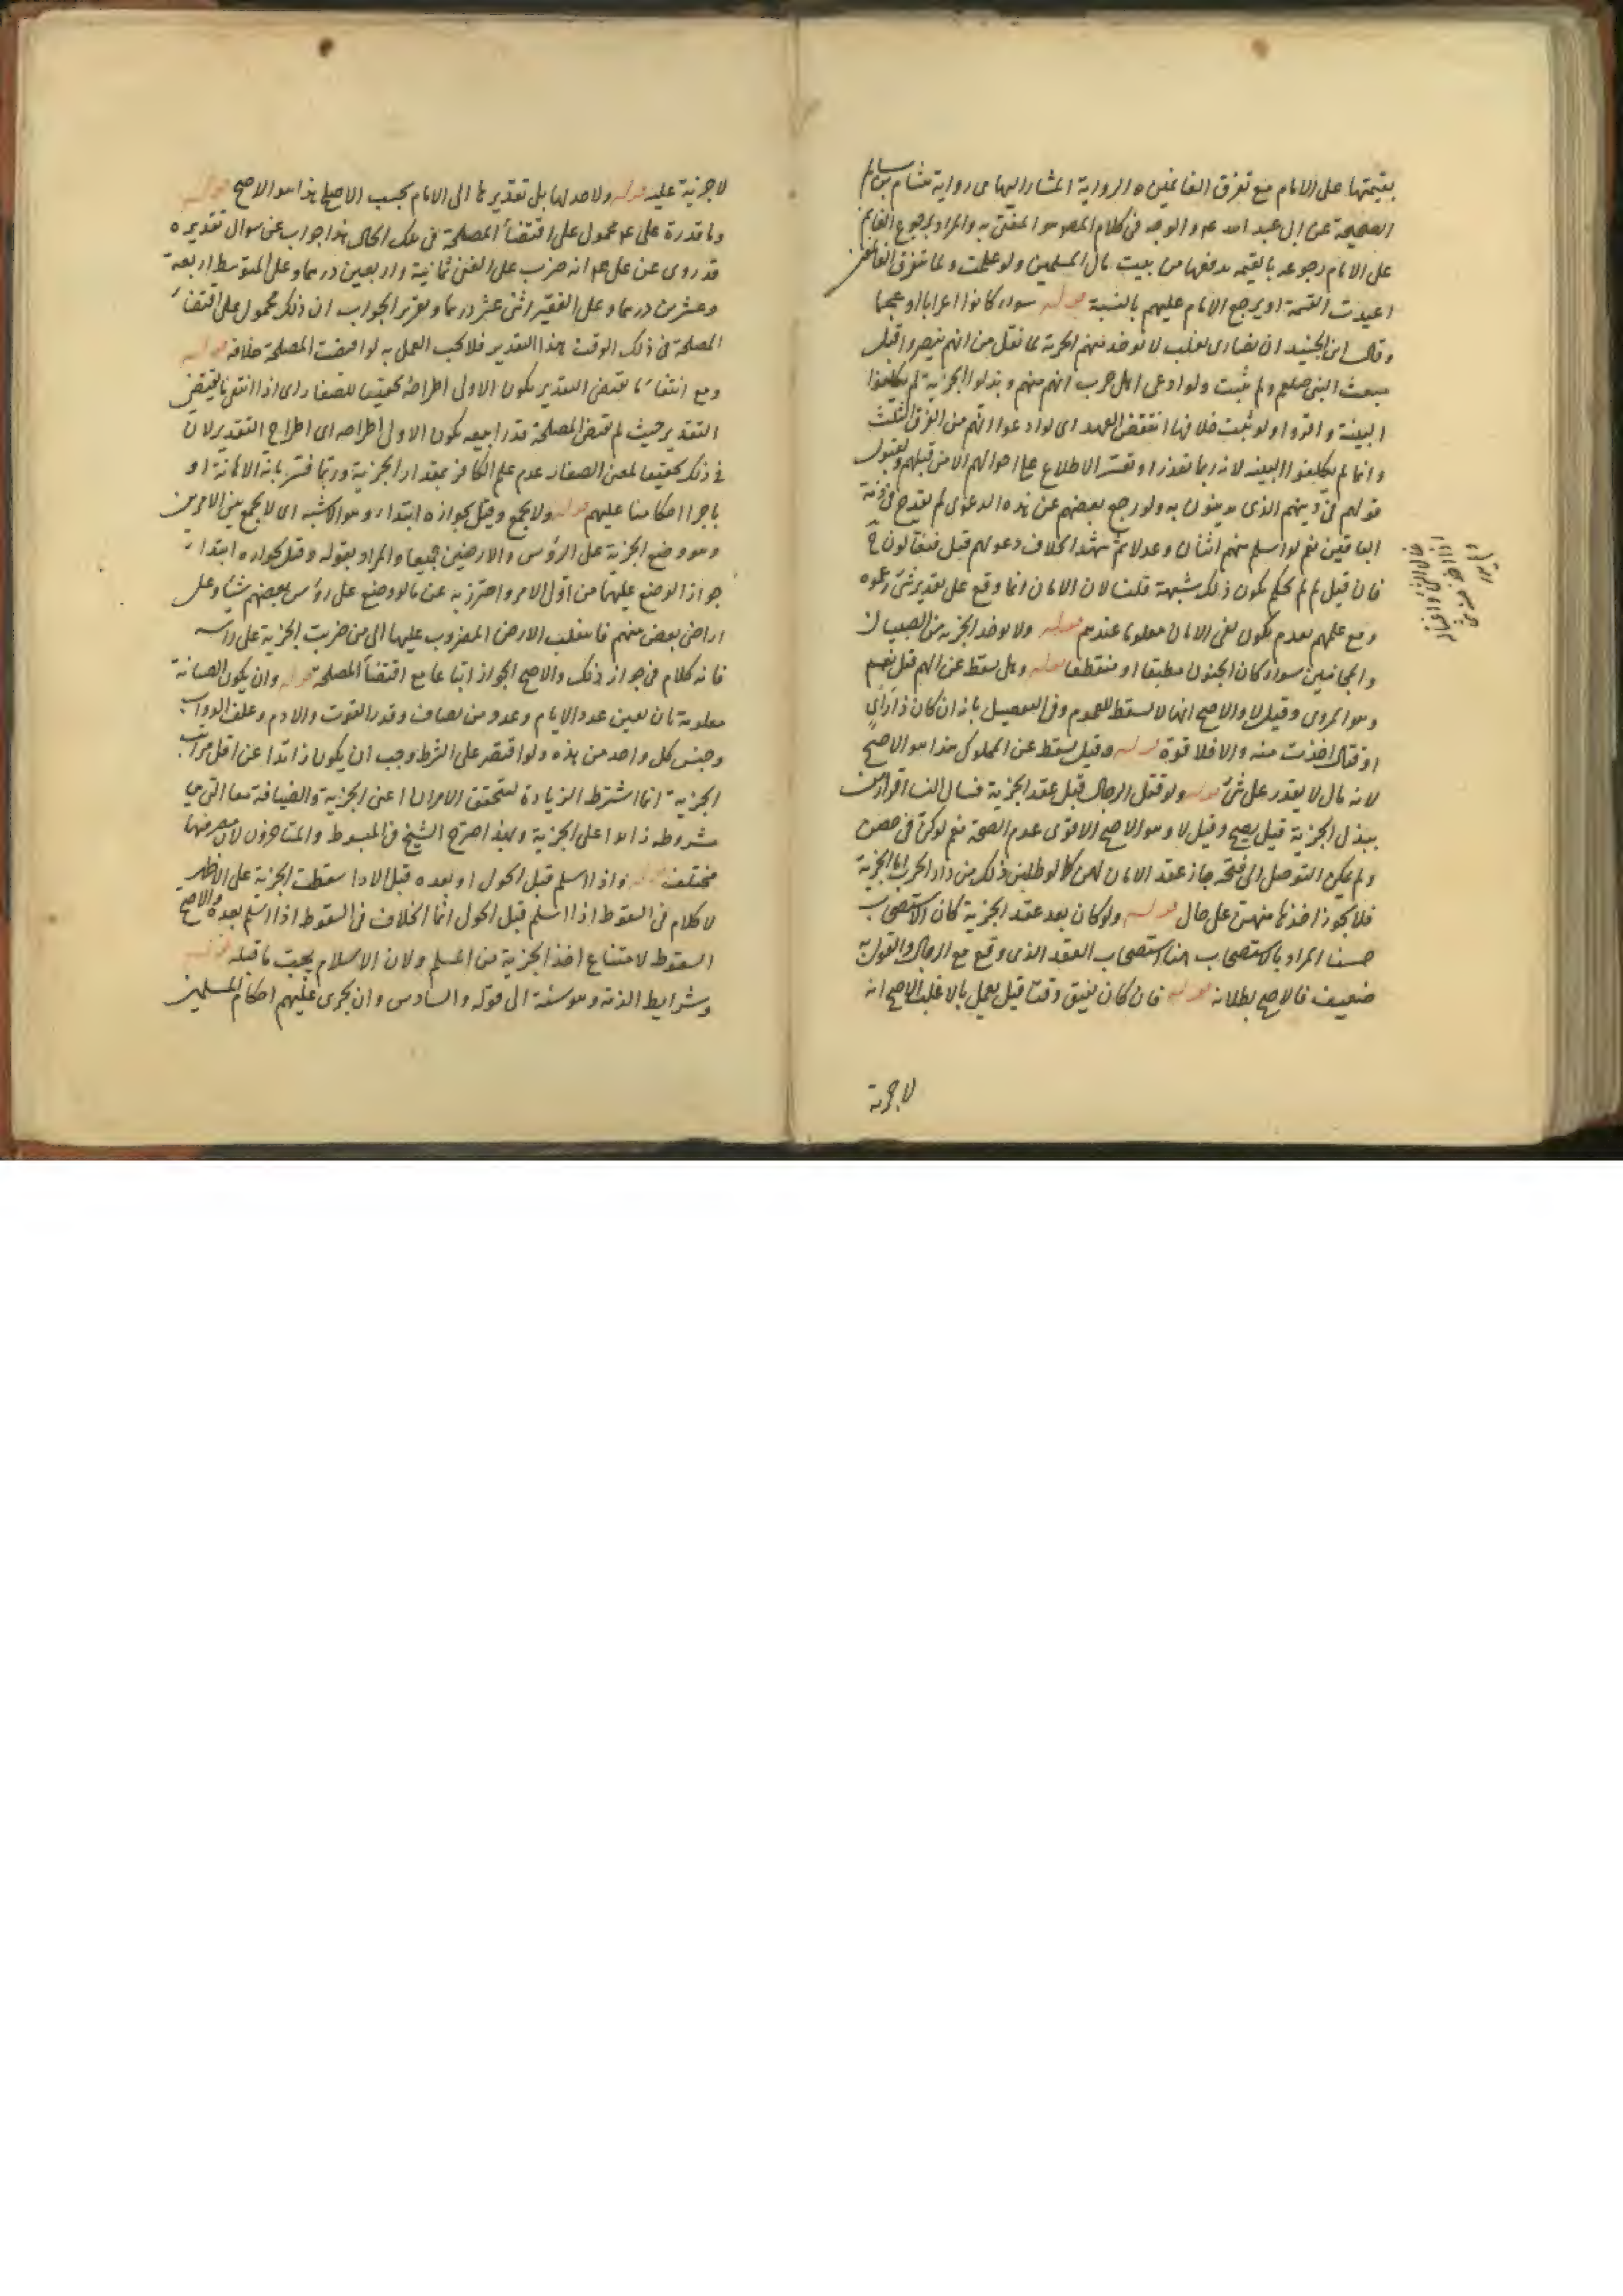 بقيمتها على الامام مع تفرق الغانمين ه الرواية المشار اليها هى رواية هشام بن سالم
الصحيحة عن ابى عبد الله ع م و الوجه فى كلام المص هو المفتى به والمراد برجوع الغانم
على الامام رجوعه بالقيمة يدفعها من بيت مال المسلمين ولو علمت ولما تتفرق الغانمين
اعيدت القسمة او يرجع الامام عليهم بالنسبة قوله سواء كانوا اعرابا او عجما
وقال ابن الجنيد ان نصارى تغلب لا توخذ منهم الجزية لما نقل من انهم تنصروا قبل
مبعث النبى صلعم ولم يثبت ولو ادعى اهل حرب انهم منهم وبذلوا الجزية لم يكلفوا
البينة و اقروا ولو ثبت خلافها انتقض العهد اى لو ادعوا انهم من الفرق الثلث
وانما لم يكلفوا البينه لانه ربما تعذر او تعسر الاطلاع على احوالهم الا من قبلهم ولقبول
قولهم فى دينهم الذى يدينون به ولو رجع بعضهم عن هذه الدعوى لم يقدح فى ذمة
الباقين نعم لو اسلم منهم اثنان وعدلا ثم شهدا بخلاف دعولهم قبل فيقاتلون ح
فان قيل لم لم يحكم بكون ذلك شبهة قلنا لان الامان انما وقع على تقدير شئ زعموه
ومع علمهم بعدمه يكون نفى الامان معلوما عندهم قوله ولا يوخذ الجزيه من الصبيان
والمجانين سواء كان الجنون مطبقا او منقطعا قوله وهل يسقط عن الهم قيل نعم
وهو المروى وقيل لا والاصح انها لا يسقط للعموم وفى التفصيل بانه ان كان ذا راى
او قتال اخذت منه والا فلا قوة قوله وقيل يسقط عن المملوك هذا هو الاصح
لانه مال لا يقدر على شئ قوله ولو قتل الرجال قبل عقد الجزية فسال النسا اقرارهن
ببذل الجزية قيل يصح وقيل لا وهو الاصح الاقوى عدم الصحة نعم لو كن فى حصن
ولم يمكن التوصل الى فتحه جاز عقد الامان لهن كما لو طلبن ذلك من دار الحرب اما الجزية
فلا يجوز اخذها منهن على حال قوله ولو كان بعد عقد الجزية كان الاستصحاب
حسنا المراد بالاستصحاب هنا استصحاب العقد الذى وقع مع الرجال والقول به
ضعيف فالاصح بطلانه قوله فان كان يفيق وقتا قيل يعمل بالاغلب الاصح انه
لا جزية
لا جزية عليه قوله ولا حد لها بل تقديرها الى الامام بحسب الاصلح هذا هو الاصح قوله
وما قدره على ع م محمول على اقتضاء المصلحة فى تلك الحال هذا جواب عن سوال تقديره
قد روى عن على ع م انه ضرب على الغنى ثمانية واربعين درهما وعلى المتوسط اربعة
وعشرين درهما وعلى الفقير اثنى عشر درهما وتقرير الجواب ان ذلك محمول على اقتضاء
المصلحة فى ذلك الوقت هذا التقدير فلا يجب العمل به لو اقتضت المصلحة خلافه قوله
ومع انتفاء ما يقتضى التقدير يكون الاولى اطراحه تحقيقا للصغار اى اذا انتفى ما يقتضى
التقدير حيث لم يقتض المصلحة قدرا بعينه يكون الاولى اطراحه اى اطراح التقدير لان
فى ذلك تحقيقا لمعنى الصغار عدم علم الكافر بمقدار الجزية وربما فسر بانه الاهانة او
باجراء احكامنا عليهم قوله ولا يجمع وقيل بجوازه ابتداء وهو الاشبه اى لا يجمع بين الامرين
وهو وضع الجزية على الرؤس والارضين جميعا والمراد بقوله وقيل بجوازه ابتداء
جواز الوضع عليهما من اول الامر واحترز به عن ما لو وضع على رؤس بعضهم شيئا وعلى
اراضى بعض منهم فانتقلت الارض المضروب عليها الى من ضربت الجزية على راسه
فانه كلام فى جواز ذلك والاصح الجواز اتباعا مع اقتضاء المصلحة قوله وان يكون الضيافة
معلومة بان يعين عدد الايام وعدد من يضاف وقدر القوت والادم وعلف الدواب
وجنس كل واحد من هذه ولو اقتصر على الشرط وجب ان يكون زائدا عن اقل مراتب
الجزية انما اشترط الزيادة لتحقق الامران اعنى الجزية والضيافة معا التى هى
مشروطه زائدا على الجزية وبهذا صرح الشيخ فى المبسوط والمتاخرون لان مصرفهما
مختلف قوله واذا اسلم قبل الحول او بعده قبل الاداء سقطت الجزية على الاظهر
لا كلام فى السقوط اذا اسلم قبل الحول انما الخلاف فى السقوط اذا اسلم بعده والاصح
السقوط لامتناع اخذ الجزية من المسلم ولان الاسلام يجب ما قبله قوله
وشرايط الذمة وهو ستة الى قوله والسادس وان يجرى عليهم احكام المسلمين